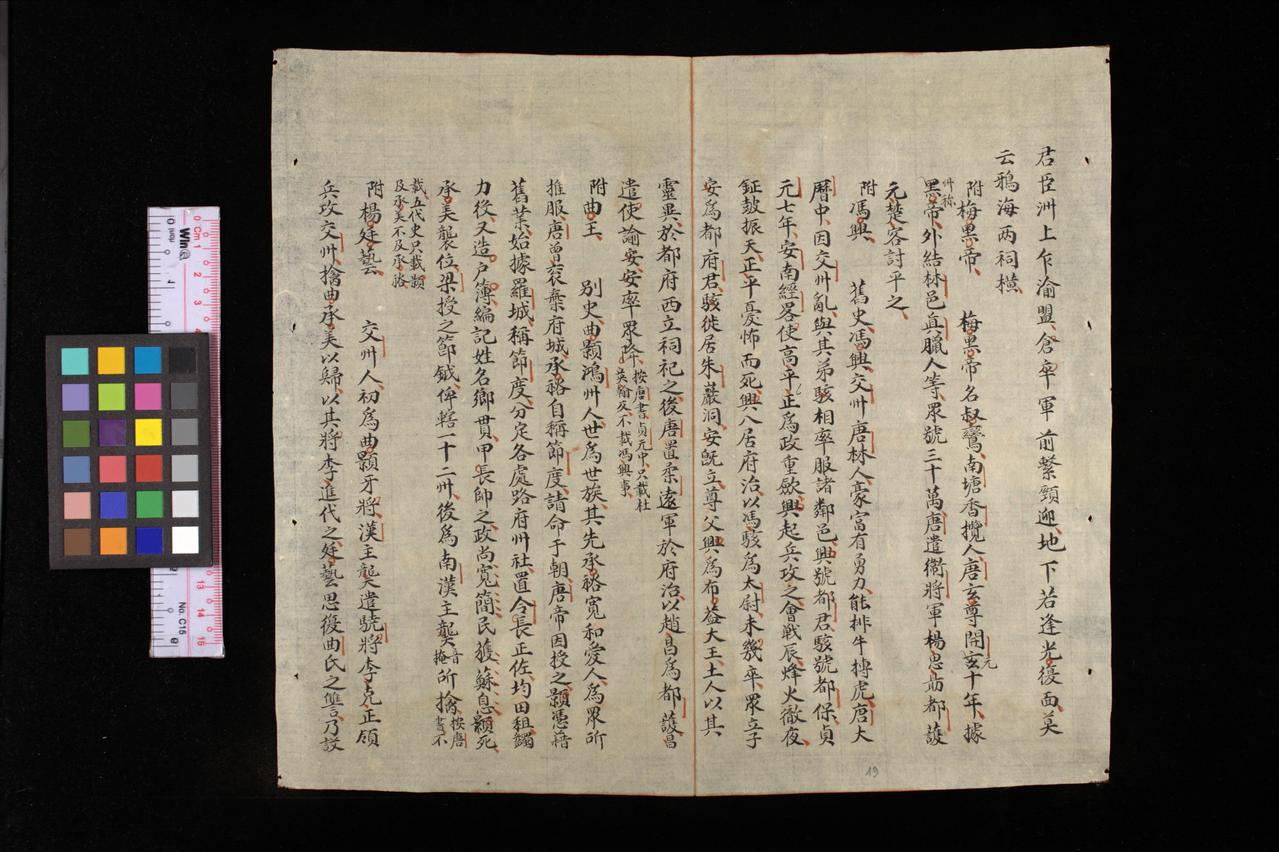 君臣洲上乍渝盟倉卒軍前繫頸迎地下若逢光復面莫
云鴉海両祠横
附梅黒帝 梅黒帝名叔鸞南塘香攬人唐玄尊開玄元十年據
州称
黒帝外結林邑真臘人等眾號三十萬唐遣衛將軍楊思勗都護
元楚客討平之
附馮興 舊史馮興交州唐林人豪富有勇力能排牛搏虎唐大
曆中因交州亂與其弟駭相率服諸鄰邑興號都君駭號都保貞
元七年安南經畧使高平正爲政重歛興起兵攻之會戦辰烽火徹夜
鉦鼓振天正平憂怖而死興入居府治以馮駭爲太尉未幾卒眾立子
安爲都府君駭徙居朱巖洞安既立尊父興爲布蓋大王土人以其
靈異於都府西立祠祀之後唐置柔遠軍於府治以趙昌爲都護昌
遣使諭安安率眾降按唐書貞元中只載杜
英翰反不載馮興事
附曲王 別史曲顥鴻州人世爲世族其先承裕寬和愛人爲眾所
推服唐曽袞棄府城承裕自稱節度請命于朝唐帝因授之顥憑藉
舊業始據羅城稱節度分定各處路府州社置令長正佐均田租蠲
力役又造戸簿編記姓名鄉貫甲長帥之政尚寬簡民獲蘇息顥死
承美襲位梁授之節鉞俾轄一十二州後爲南漢主龑音掩所擒按唐書不
載五代史只載顥
及承美不及承裕
附楊廷藝 交州人初爲曲顥牙將漢主龑遣驍將李克正領
兵攻交州擒曲承美以歸以其將李進代之廷藝思復曲氏之讐乃設
19